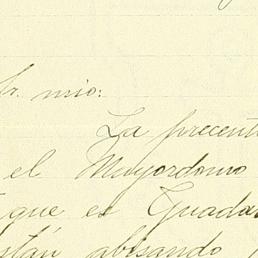 Sr. mio:
La precent
el Mayordomo
que es Guada
stán abisando